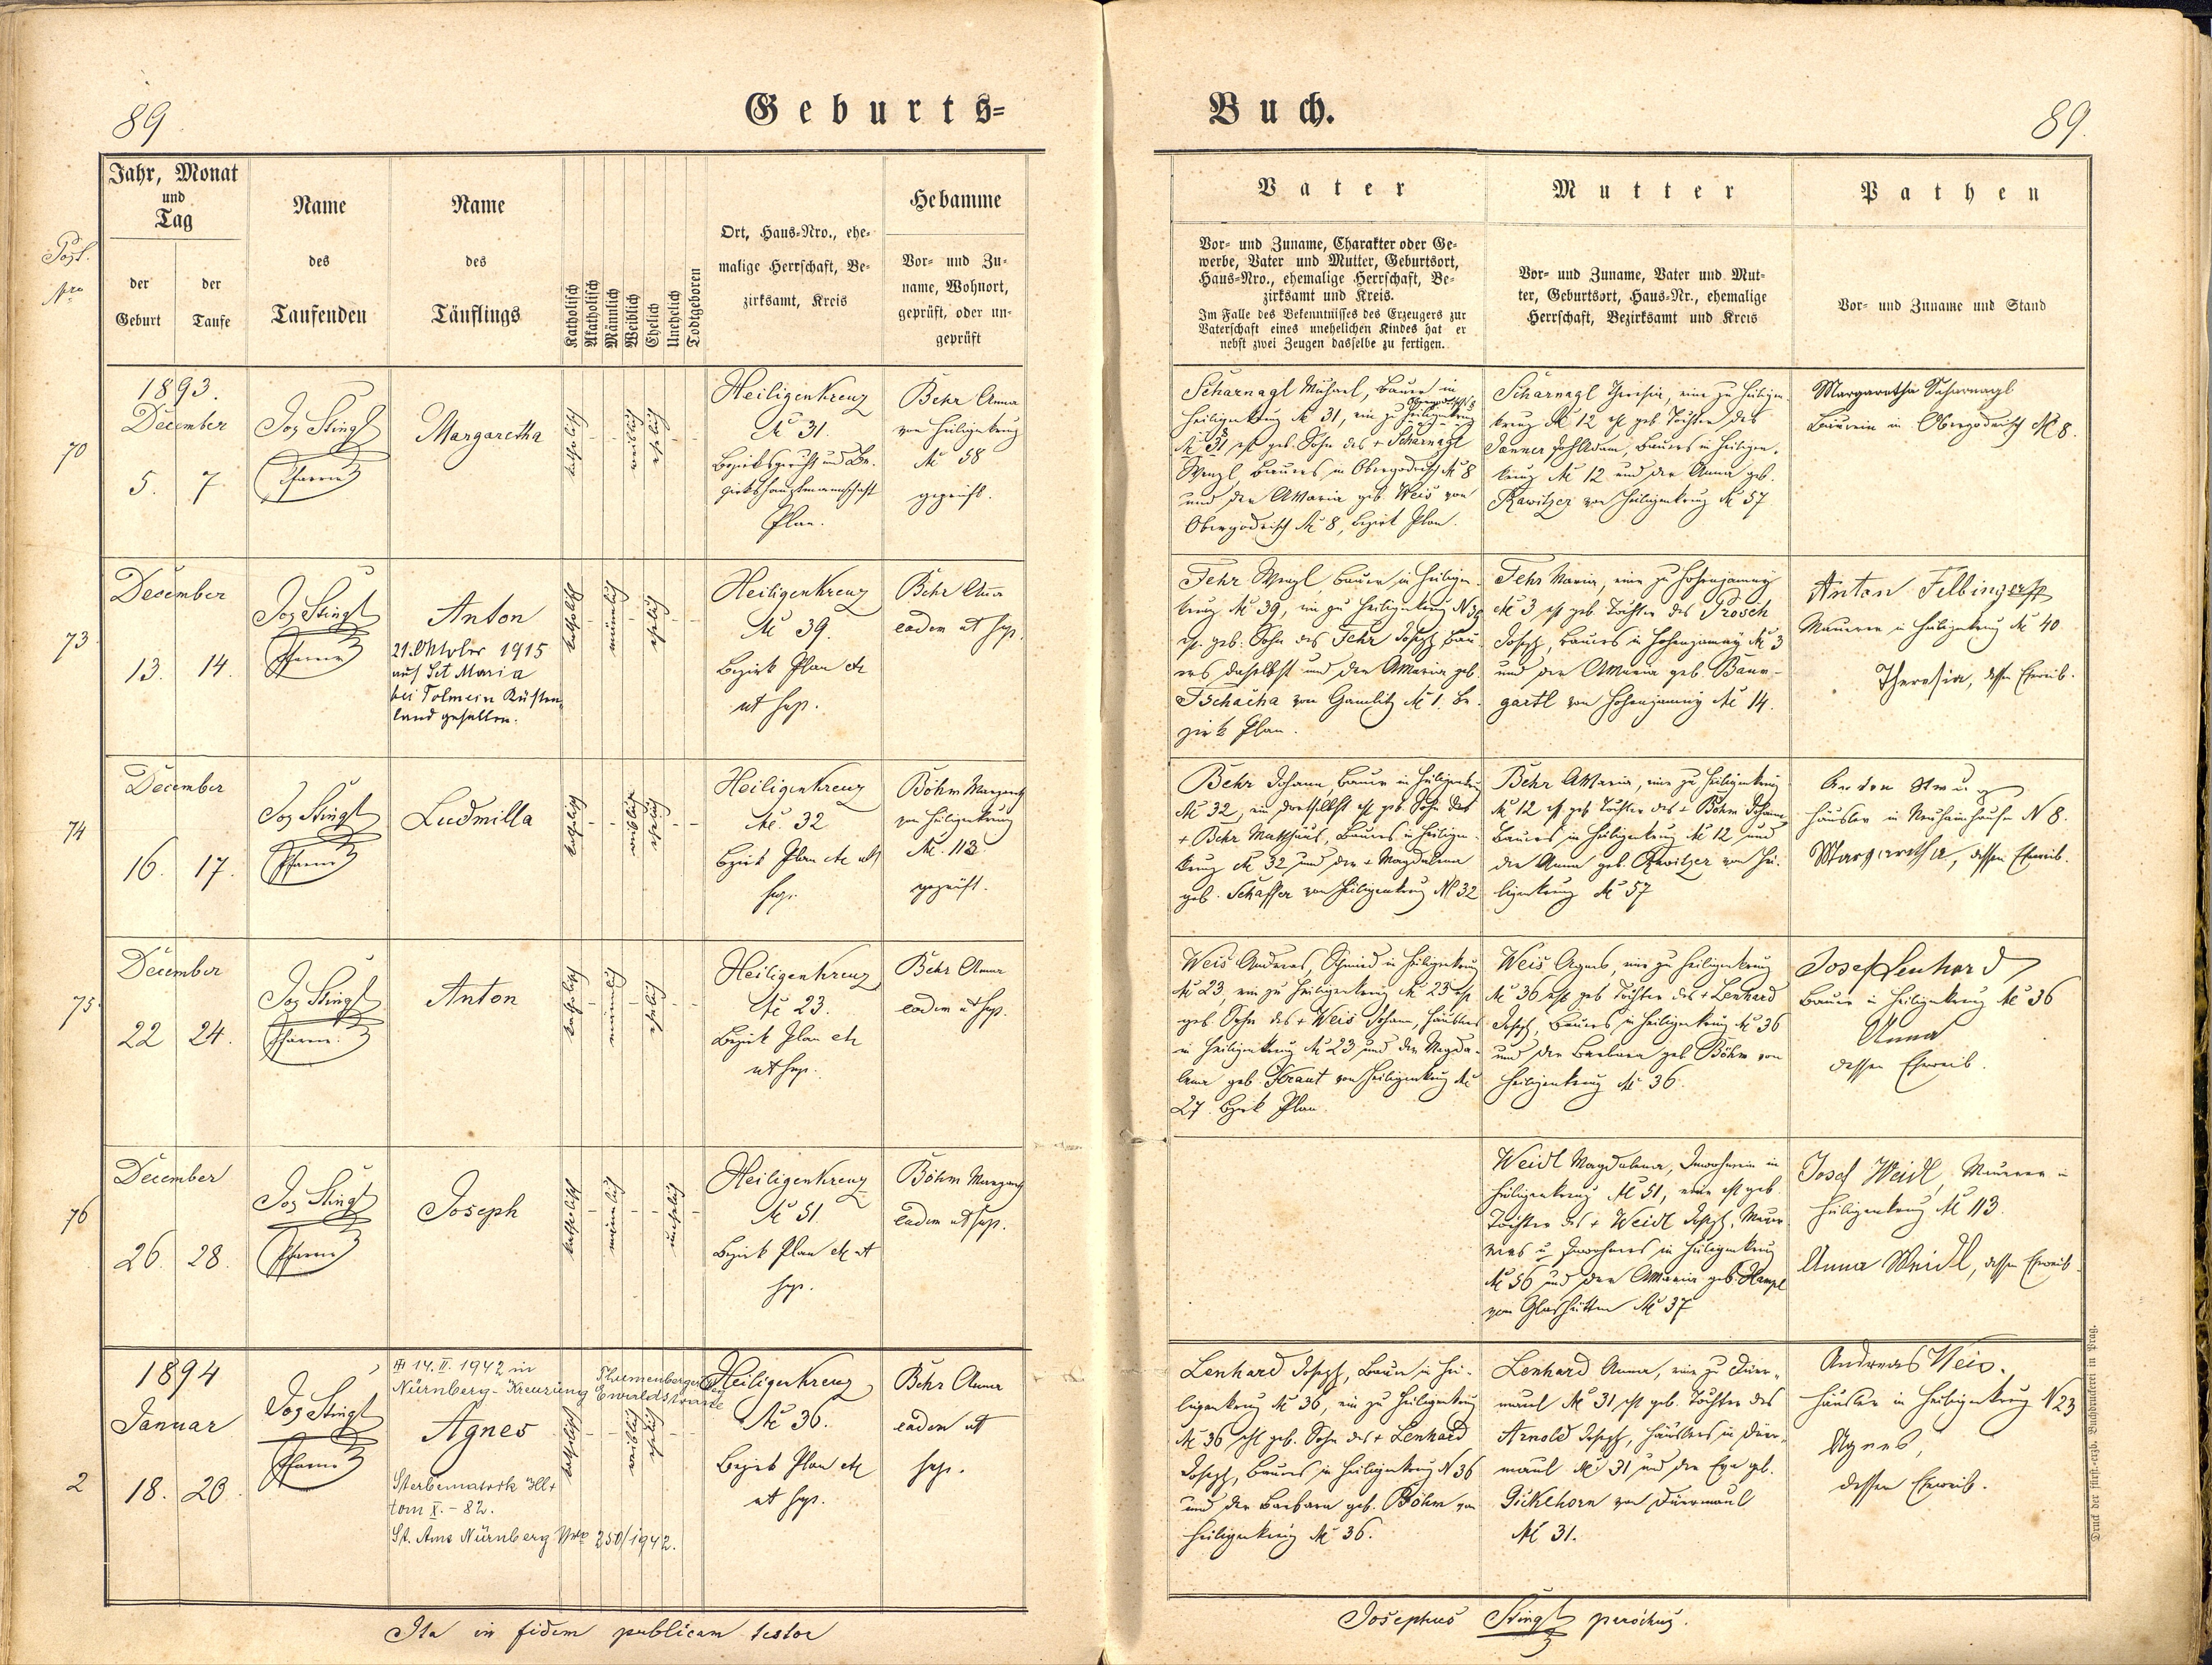 89
Geburts=
Buch.
89.
Post.
Nro
Jahr, Monat
und
Tag
der
Geburt
der
Taufe
Name
des
Taufenden
Name
des
Täuflings
Katholisch
Akatholisch
Männlich
Weiblich
Ehelich
Unehelich
Todtgeboren
Ort, Haus=Nro., ehe=
malige Herrschaft, Be=
zirksamt, Kreis
Hebamme
Vor= und Zu=
name, Wohnort,
geprüft, oder un=
geprüft
Vater
Vor= und Zuname, Charakter oder Ge=
werbe, Vater und Mutter, Geburtsort,
Haus=Nro., ehemalige Herrschaft, Be=
zirksamt und Kreis.
Im Falle des Bekenntnisses des Erzeugers zur
Vaterschaft eines unehelichen Kindes hat er
nebst zwei Zeugen dasselbe zu fertigen.
Mutter
Vor= und Zuname, Vater und Mut=
ter, Geburtsort, Haus=Nr., ehemalige
Herrschaft, Bezirksamt und Kreis
Pathen
Vor= und Zuname und Stand
70
1893.
December
5. 7.
Jos Stingl
Pfarrer
Margaretha
katholisch
weiblich
ehelich
Heiligenkreuz
№ 31.
Bezirksgericht und Be-
zirkshauptmannschaft
Plan.
Behr Anna
von Heiligenkreuz
№ 58
geprüft.
Scharnagl Michael, Bauer in
Obergodrisch 8
Heiligenkreuz № 31, ein zu Heiligenkreuz
№ 31 ist geb. Sohn des + Scharnagl
Wenzl Bauers in Obergodrisch № 8
und der Maria geb. Weis von
Obergodrisch № 8, Bezirk Plan.
Scharnagl Theresia, eine zu Heiligen-
kreuz № 12 ist geb Tochter des
Janner Joh Adam, Bauers in Heiligen-
kreuz № 12 und der Anna geb.
Rawitzer von Heiligenkreuz № 57
Margaretha Scharnagl
Bäuerin in Obergodrisch № 8.
73
December
13. 14.
Jos Stingl
Pfarrer
Anton
21. Oktober 1915
auf Sct Maria
bei Tolmein Küsten
land gefallen.
katholisch
männlich
ehelich
Heiligenkreuz
№ 39.
Bezirk Plan etc
ut sup.
Behr Anna
eadem ut sup.
Fehr Wenzl Bauer in Heiligen-
kreuz № 39, ein zu Heiligenkreuz N 39
ist geb. Sohn des Fehr Joseph Bau-
ers daselbst und der Maria geb.
Tschacha von Gamlitz № 1. Be-
zirk Plan.
Fehr Maria, eine zu Hohenjamny
№ 3 ist geb. Tochter des Prosch
Joseph, Bauers in Hohenjamny № 3
und der Maria geb. Baum-
gartl von Hohenjamny № 14.
Anton Felbinger
Maurer in Heiligenkreuz № 40
Theresia, dessen Eheweib.
74
December
16. 17.
Jos Stingl
Pfarrer
Ludmilla
katholisch
weiblich
ehelich
Heiligenkreuz
№. 32
Bezirk Plan etc ut
sup.
Böhm Margareth
von Heiligenkreuz
№. 113
geprüft.
Behr Johann, Bauer in Heiligenkreuz
№ 32, ein dortselbst ist geb Sohn des
+ Behr Matthäus, Bauers in Heiligen-
kreuz № 32 und der + Magdalena
geb. Schaffer von Heiligenkreuz № 32
Behr Maria, eine zu Heiligenkreuz
№ 12 ist geb Tochter des + Böhm Johann
Bauers in Heiligenkreuz № 12 und
der Anna geb. Rawitzer von Hei-
ligenkreuz № 57
Häusler in Neuhäusl N 8.
Margaretha, dessen Eheweib.
75
December
22 24.
Jos Stingl
Pfarrer
Anton
katholisch
männlich
ehelich
Heiligenkreuz
№ 23.
Bezirk Plan etc
ut sup.
Behr Anna
eadem ut sup.
Weis Andreas, Schmied in Heiligenkreuz
№ 23, ein zu Heiligenkreuz № 23 ist
geb. Sohn des + Weis Johann, Häuslers
in Heiligenkreuz № 23 und der Magda-
lena geb. Kraut von Heiligenkreuz №
27. Bezirk Plan.
Weis Agnes, eine zu Heiligenkreuz
№ 36 ist geb Tochter des + Lenhard
Joseph, Bauers in Heiligenkreuz № 36
und der Barbara geb Böhm von
Heiligenkreuz № 36.
Josef Lenhard
Bauer in Heiligenkreuz № 36
Anna
dessen Eheweib.
76
December
26. 28.
Jos Stingl
Pfarrer
Joseph
katholisch
männlich
unehelich
Heiligenkreuz
№ 51.
Bezirk Plan etc ut
sup.
Böhm Margareth
eadem ut sup.
Weidl Magdalena, Inwohnerin in
Heiligenkreuz № 51, eine ist geb.
Tochter des + Weidl Joseph, Mau-
rers u. Inwohners in Heiligenkreuz
№ 56 und der Maria geb. Hampl
von Glashütten № 37
Josef Weidl Maurer in
Heiligenkreuz № 113.
Anna Weidl, dessen Eheweib.
2
1894
Januar
18. 20.
Jos Stingl
Pfarrer
14. II. 1942 in
Nürnberg - Kreuzung
Ewaldstrasse
Agnes
Sterbematrik
tom X. - 82.
St. Amt Nürnberg Nro 250/1942.
katholisch
weiblich
ehelich
Heiligenkreuz
№ 36.
Bezirk Plan etc
ut sup.
Behr Anna
eadem ut
sup.
Lenhard Joseph, Bauer in Hei-
ligenkreuz № 36, ein zu Heiligenkreuz
№ 36 ist geb. Sohn des + Lenhard
Joseph, Bauers in Heiligenkreuz N 36
und der Barbara geb. Böhm von
Heiligenkreuz № 36.
Lenhard Anna, eine zu Dürr-
maul № 31 ist geb. Tochter des
Arnold Joseph, Häuslers in Dürr-
maul № 31 und der Eva geb.
Gickelhorn von Dürrmaul
№ 31.
Andreas Weis.
Häusler in Heiligenkreuz N 23
Agnes,
dessen Eheweib.
Ita in fidem publicam testor
Josephus Stingl parochus.
Druck der fürst.-erzb. Buchdruckerei in Prag.